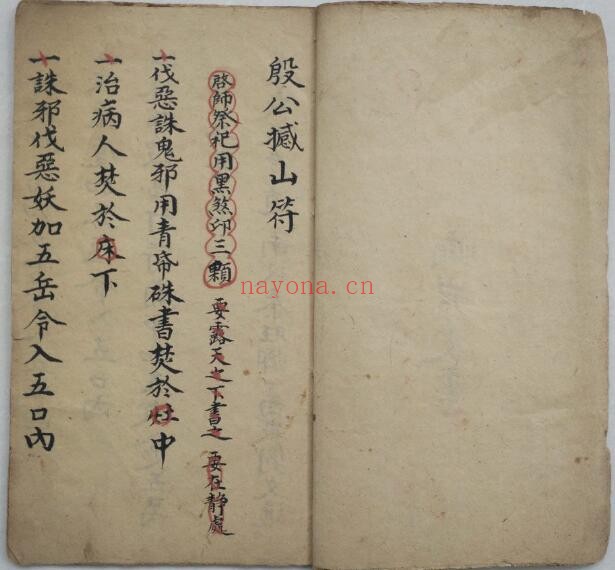 殷公撼山符
啓師祭祀用黑煞印三顆 要露天之下書之 要在靜處
一伐惡誅鬼邪用青帋硃書焚於灶中
一治病人焚於床下
一誅邪伐惡妖加五岳令入五口內
nayona.cn